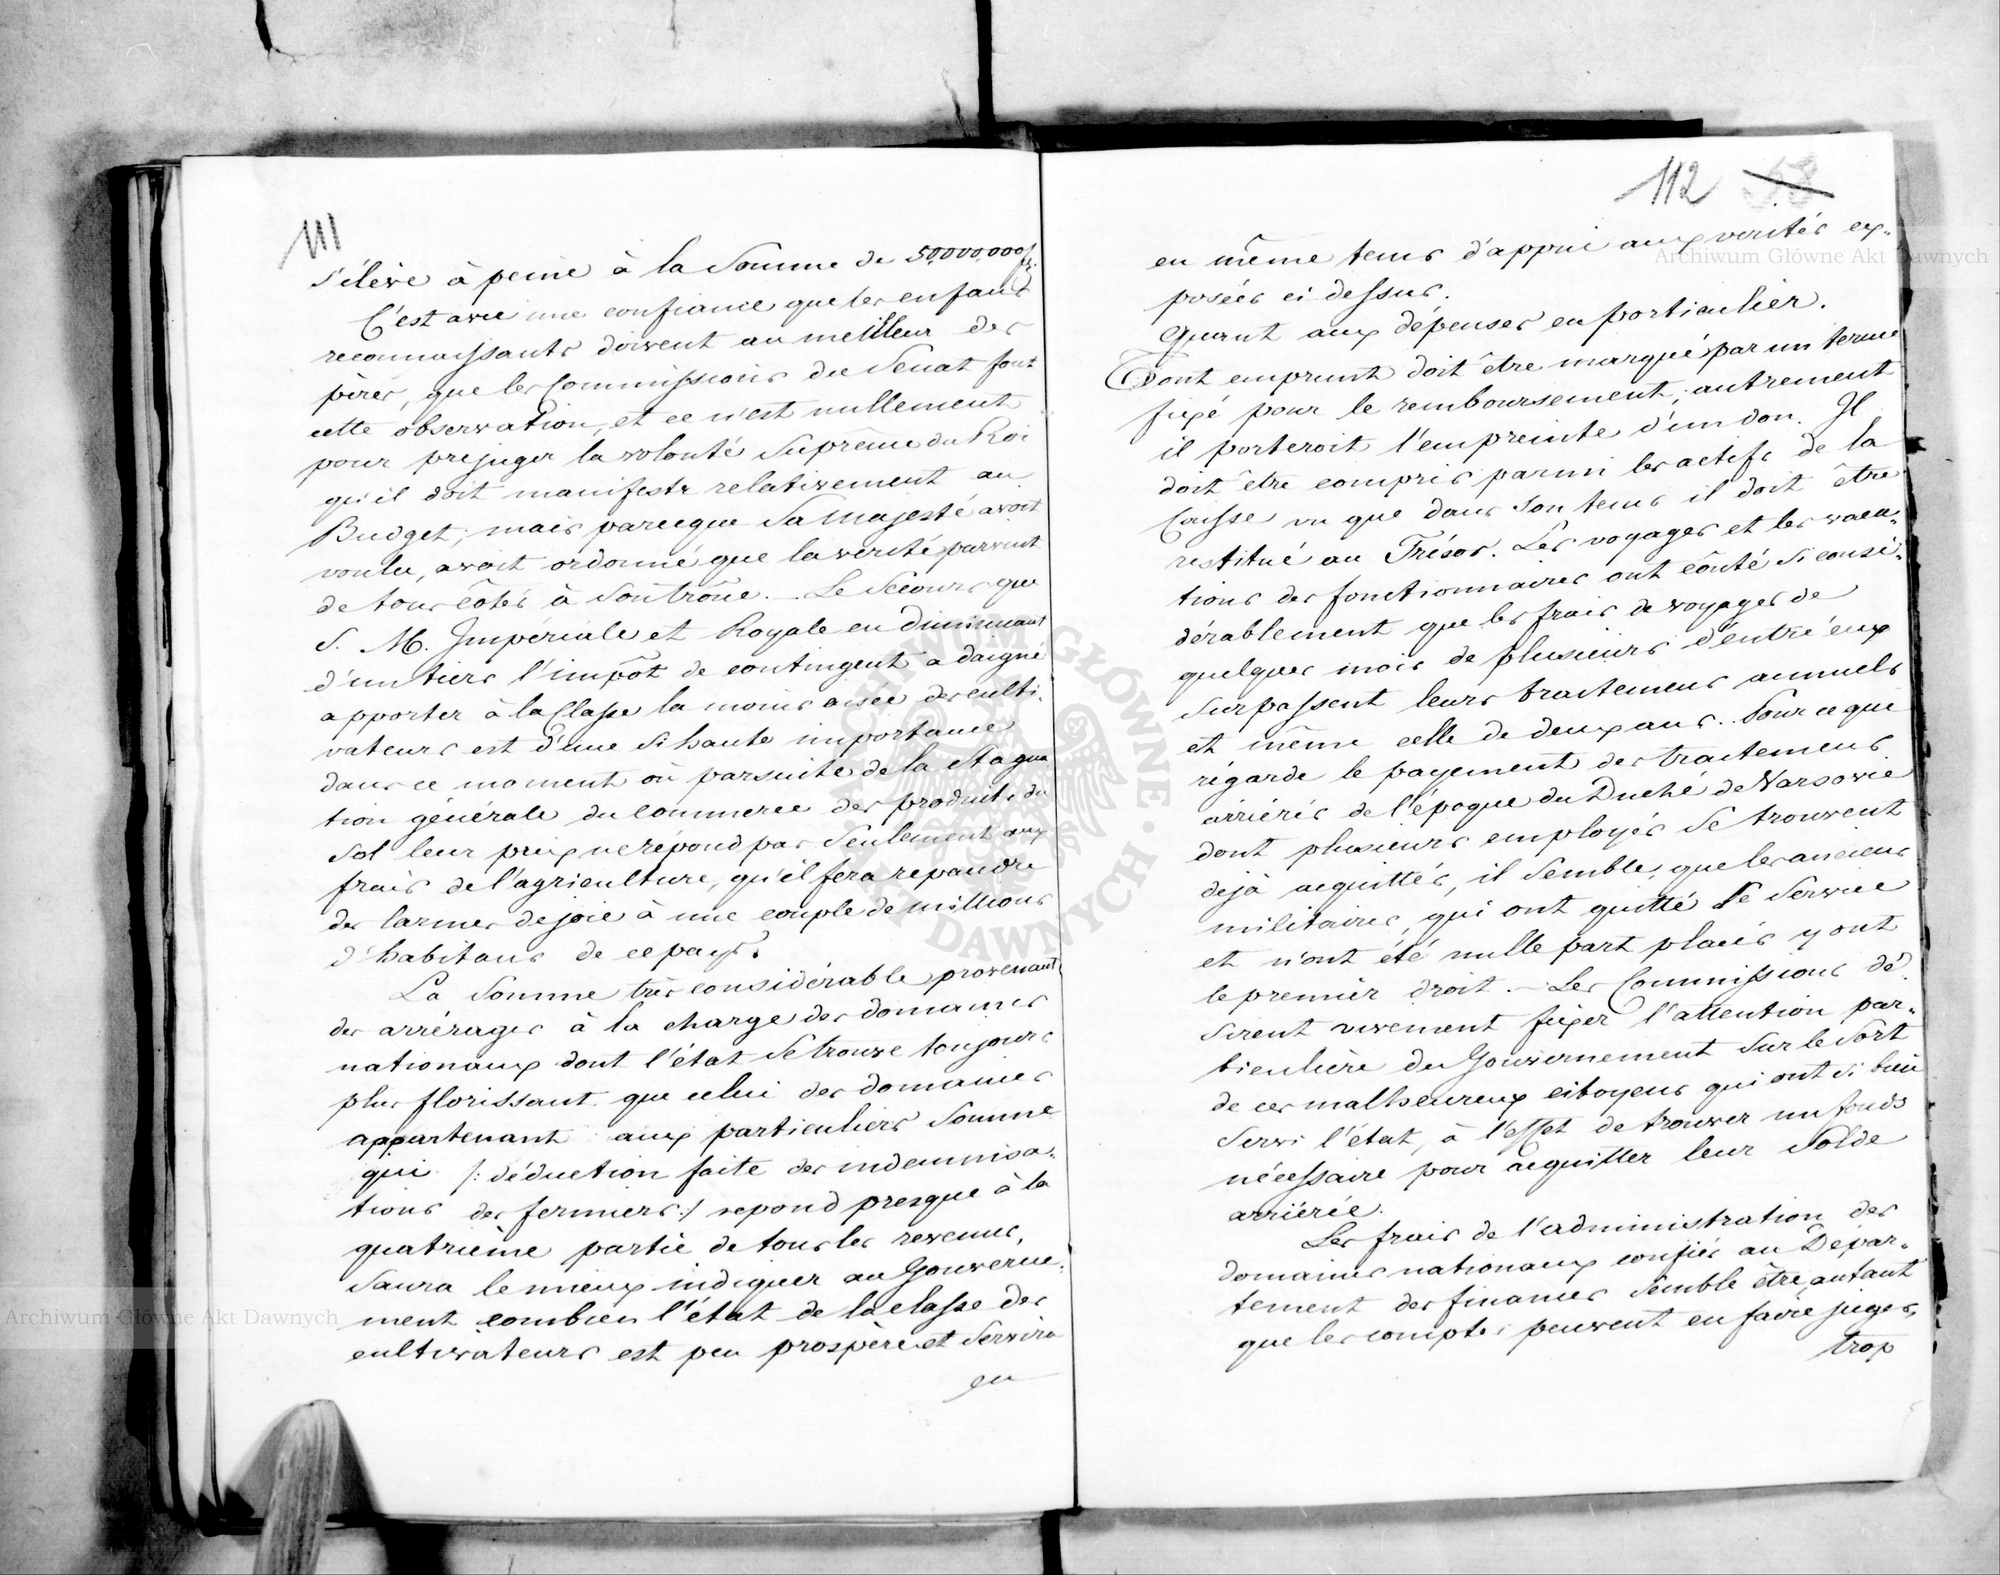 111
s'élève à peine à la Somme de 50,000,000 fl.
C'est avec une confiance que les enfans
reconnaissants doivent au meilleur des
pères, que les Commissions du Senat font
cette observation, et ce n'est nullement
pour préjuger la volonté Suprême du Roi
qu'il doit manifester relativement au
Budget; mais parceque Sa Majesté avoit
voulu, avoit ordonné que la verité parvint
de tous côtés à Son trône. — Le Secours que
S. M. Impériale et Royale en diminuant
d'un tiers l'impôt de contingent a daigné
apporter à la Classe la moins aisée des culti-
vateurs est d'une Si haute importance
dans ce moment où par suite de la Stagna
tion générale du commerce des produits du
Sol leur prix ne répond pas Seulement aux
frais de l'agriculture, qu'il fera repandre
des larmes de joie à une couple de millions
d'habitans de ce pays.
La Somme très considérable provenant
des arrérages à la charge des domaines
nationaux dont l'état Se trouve toujours
plus florissant que celui des domaines
appartenant aux particuliers Somme
qui /: déduction faite des indemnisa-
tions des fermiers :/ repond presque à la
quatrième partie de tous les revenus,
Saura le mieux indiquer au Gouverne-
ment combien l'état de la classe des
cultivateurs est peu prospère et Servira
en
112 53
en même tems d'appui aux verités ex-
posées ci dessus.
Quant aux dépenses en particulier.
Tout emprunt doit être marqué par un terme
fixé pour le remboursement; autrement
il porteroit l'empreinte d'un don. Il
doit être compris parmi les actifs de la
Caisse vu que dans Son tems il doit être
restitué au Trésor. Les voyages et les vaca-
tions des fonctionnaires ont côuté Si consi-
dérablement que les frais de voyages de
quelques mois de plusieurs d'entre'eux
Surpassent leurs traitemens annuels
et même celle de deux ans. Pour ce qui
régarde le payement des traitemens
arriérés de l'époque du Duché de Varsovie
dont plusieurs employés Se trouvent
dejà acquittés, il Semble, que les anciens
militaires, qui ont quitté le Service
et n'ont été nulle part placés y ont
le premier droit. — Les Commissions dé-
sirent vivement fixer l'attention par-
ticulière du Gouvernement Sur le Sort
de ces malheureux citoyens qui ont Si bien
Servi l'état, à l'effet de trouver un fonds
nécessaire pour acquitter leur Solde
arriérée.
Les frais de l'administration des
domaines nationaux confiés au Dépar-
tement des finances Semble être, autant
que les comptes peuvent en faire juger,
trop
Archiwum Główne Akt Dawnych
Archiwum Główne Akt Dawnych
ARCHIWUM GŁÓWNE AKT DAWNYCH